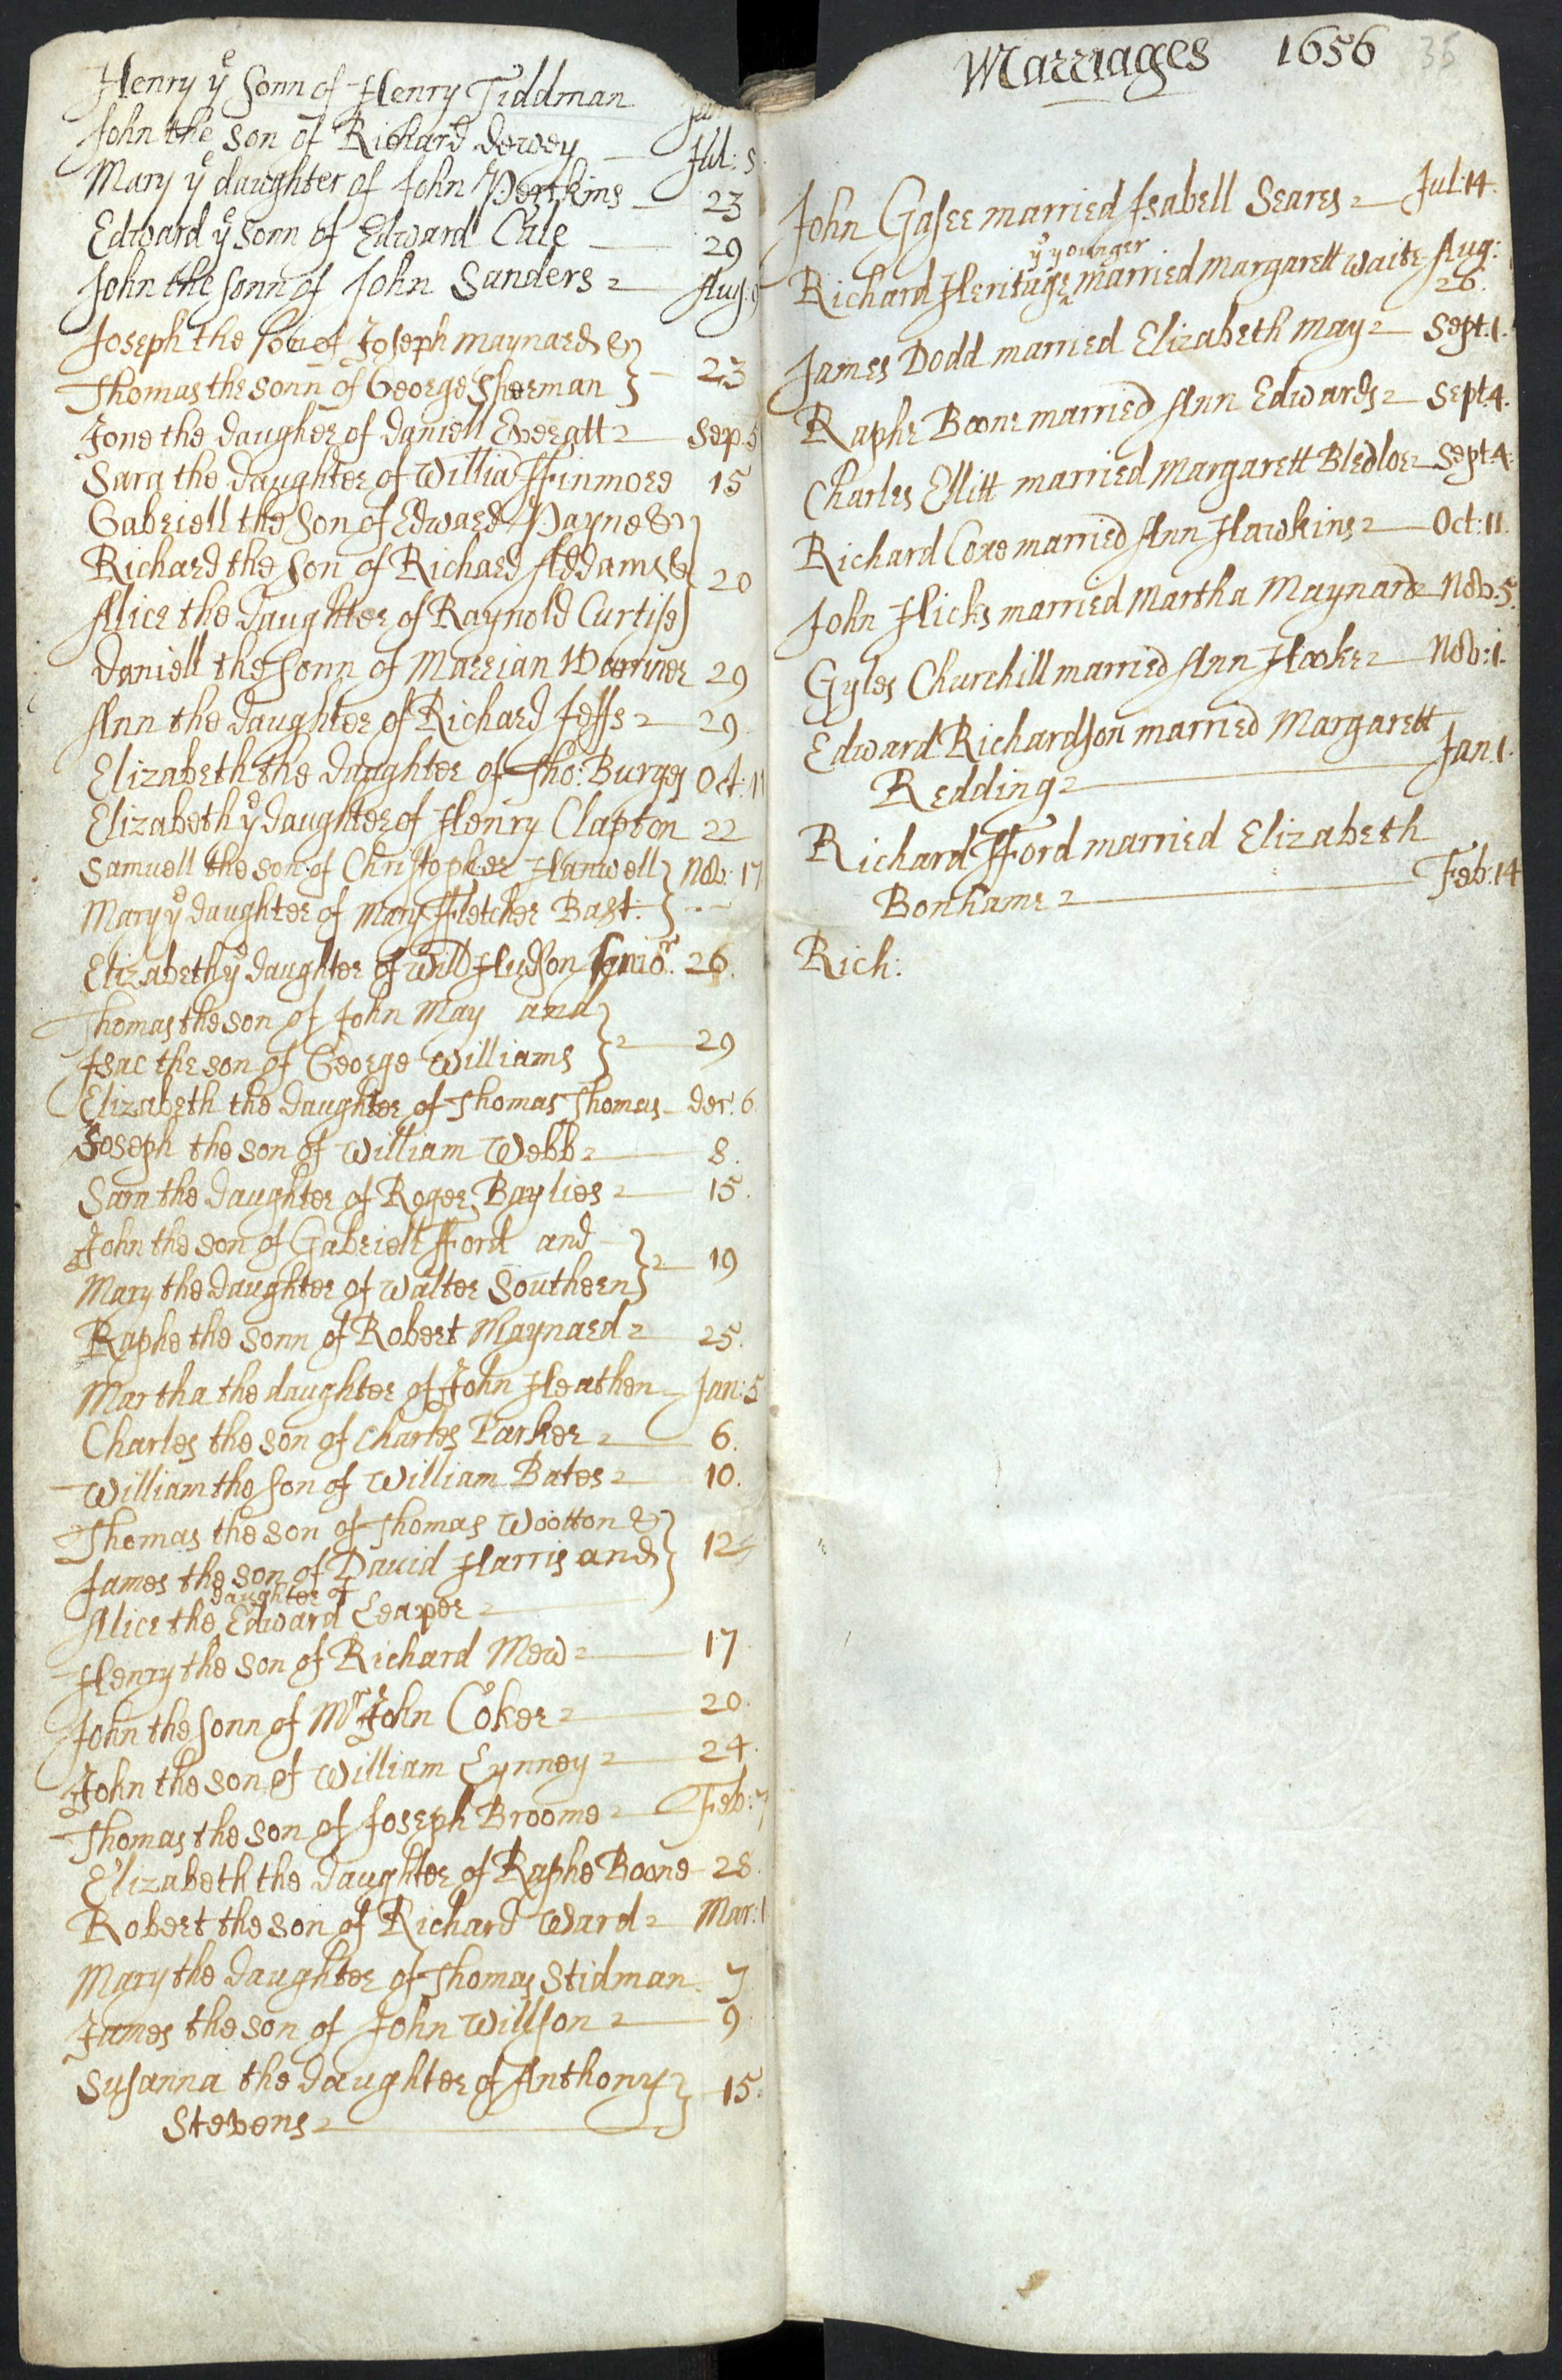 Henry yᵉ Sonn of Henry Tiddman
John the son of Richard Dewey — Jul: 5
Mary yᵉ daughter of John Perkins — 23
Edward yᵉ sonn of Edward Cale — 29
John the sonn of John Sanders — Aug: 9
Joseph the son of Joseph Maynard &
Thomas the sonn of George Sherman } — 23
Jone the daugher of Daniell Everatt — Sep. 5
Sara the daughter of Willia ffinmore 15
Gabriell the Son of Edward Payne &
Richard the Son of Richard Addams & 20
Alice the daughter of Raynold Curtise
Daniell the Sonn of Marrian 29
Ann the daughter of Richard Jeffs — 29
Elizabeth the daughter of Tho: Burges Oct: 11
Elizabeth yᵉ daughter of Henry Clapton 22
Samuell the son of Christopher Hanwell } Nov: 17
Mary yᵉ daughter of Mary ffletcher Bast: }
Elizabeth yᵉ daughter of Will Hudson senioʳ. 26.
Thomas the son of John May and
Isac the son of George Williams } — 29
Elizabeth the daughter of Thomas Thomas — der: 6
Joseph the son of William Webb — 8.
Sara the daughter of Roger Baylies — 15.
John the son of Gabriell fford and
Mary the daughter of Walter Southern } — 19
Raphe the sonn of Robert Maynard — 25.
Martha the daughter of John Heathen — Jan: 5
Charles the son of Charles Parker — 6.
William the son of William Bates — 10.
Thomas the son of Thomas Wootton &
James the son of David Harris and } 12
daughter of
Alice the Edward Leaper —
Henry the son of Richard Mew — 17
John the sonn of Mʳ John Coker — 20
John the son of William Lynney — 24.
Thomas the son of Joseph Broome — Feb: 7
Elizabeth the daughter of Raphe Boone 28.
Robert the son of Richard Ward — Mar: 1
Mary the daughter of Thomas Stidman 7
James the son of John Willson — 9
Susanna the daughter of Anthony
Stevens — } 15.
Marriages 1656 35
John Gasee married Isabell Seares — Jul: 14.
yᵉ younger
Richard Heritage married Margarett Waite Aug:
26.
James Dodd married Elizabeth May — Sept. 1.
Raphe Boone married Ann Edwards — Sept 4.
Charles Ellitt married Margarett Bledloe — Sept: 4:
Richard Coxe married Ann Hawkins — Oct: 11.
John Hicks married Martha Maynard — Nov: 5.
Gyles Churchill married Ann Hooke — Nov: 1.
Edward Richardson married Margarett
Redding — Jan 1.
Richard fford married Elizabeth
Bonhame — Feb: 14
Rich: